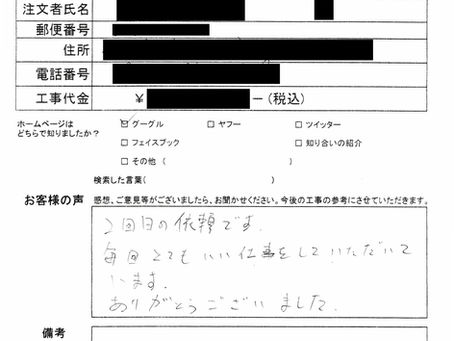 注文者氏名
郵便番号
住所
電話番号
工事代金 ￥ －(税込)
ホームページは
どちらで知りましたか？
☑ グーグル □ ヤフー □ ツイッター
□ フェイスブック □ 知り合いの紹介
□ その他 ( )
検索した言葉( )
お客様の声 感想、ご意見等がございましたら、お聞かせください。今後の工事の参考にさせていただきます。
2回目の依頼です。
毎回とてもいい仕事をしていただいて
います。
ありがとうございました。
備考